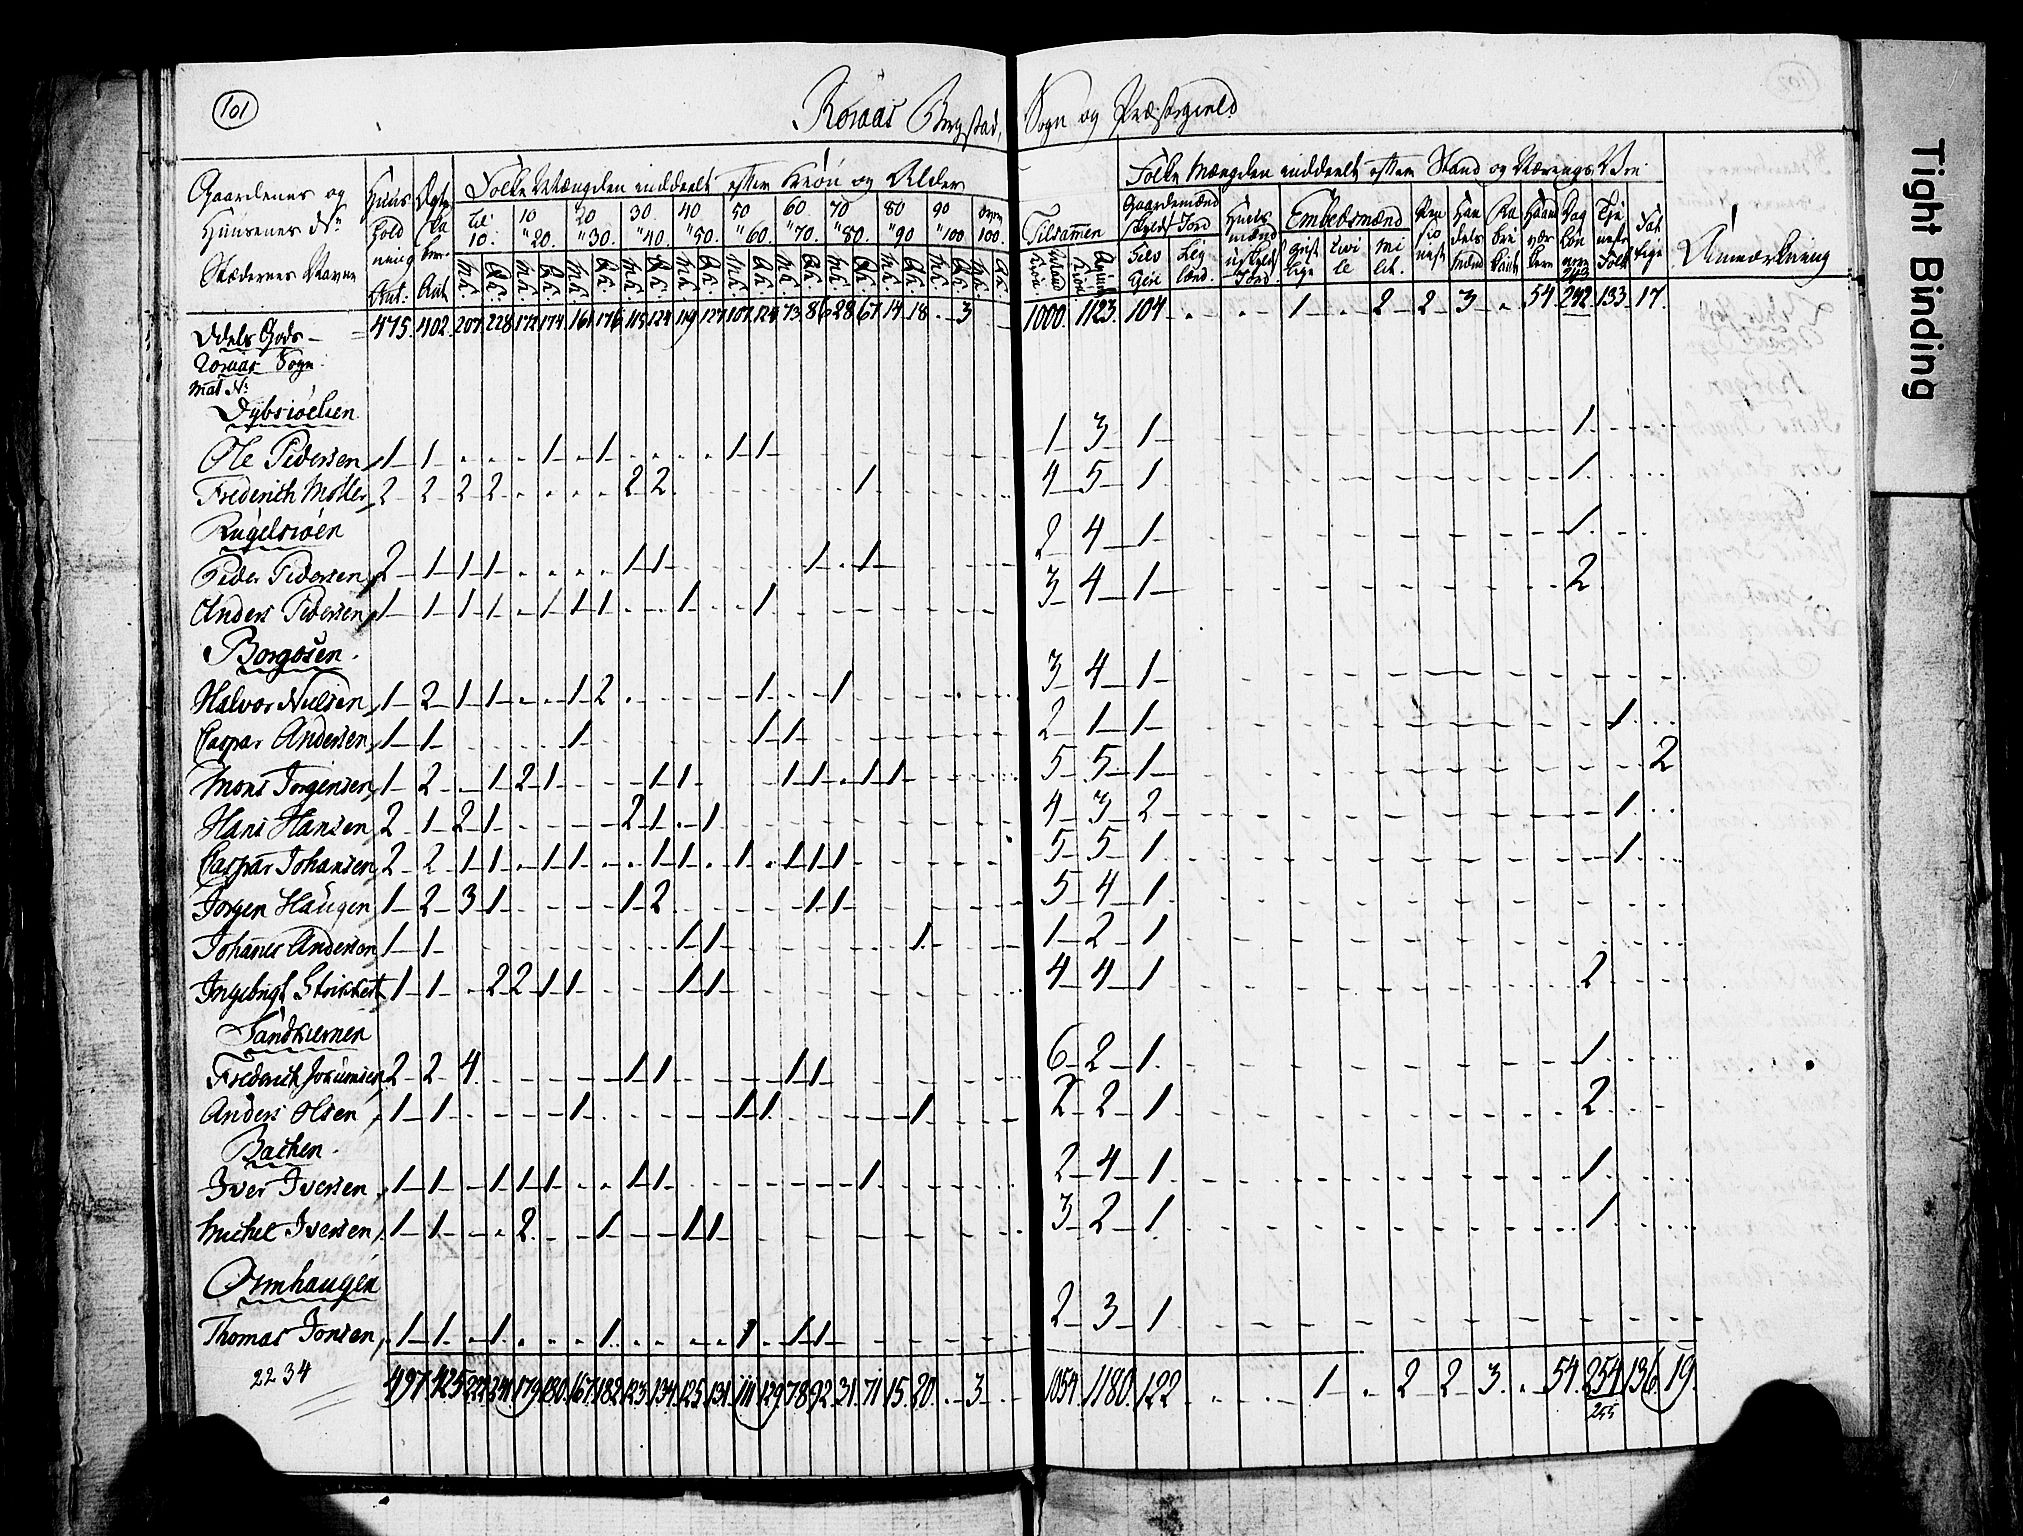 101
Roraas Bergstad, Sogn og Præstegield
102
Tight Binding
Gaardenes og Huusenes Stædernes Navne
Huus Hold ning Ant:
Folke Mængden inddeelt efter Kiøn og Alder
til 10. 10 " 20. 20 " 30. 30 " 40. 40 " 50. 50 " 60. 60 " 70. 70 " 80. 80 " 90 90 " 100 over 100.
M.K. Q.K. M.K. Q.K. M.K. Q.K. M.K. Q.K. M.K. Q.K. M.K. Q.K. M.K. Q.K. M.K. Q.K. M.K. Q.K. M.K. Q.K. M.K. Q.K.
Tilsammen
Folke Mængden inddeelt efter Stand og Nærings Vei
Gaardemænd Embedsmænd Gest lige Civi le Mi lit. Pen sio nist Han dels Mænd Fa bri kant Haand vær kere Dag løn nere Tje neste Folk Fat tige
Anmærkning
Odels Gods 475. 402. 207. 228. 172. 174. 161. 176. 115. 124. 119. 127. 107. 124. 73. 86. 28. 67. 14. 18. - 3 1000. 1123. 104 1 2 2 3 54 243 242 133 17.
Roraas Sogn.
Mat N:
Dybsiøelien
Ole Pedersen 1 1 1 1 1 1 1 3 1 1
Frederich Møller 2 2 2 2 2 2 1 4 5 1 1
Rugelsiøen
Peder Pedersen 2 1 1 1 1 1 1 1 2 4 1 1
Anders Pedersen 1 1 1 1 1 1 1 1 1 3 4 1 2
Borgosen.
Halvor Nielsen 1 2 1 1 1 2 1 1 3 4 1
Caspar Andersen 1 1 1 1 1 2 1 1 1
Mons Jorgensen 1 2 1 2 1 1 1 1 1 1 1 5 5 1 2
Hans Hansen 2 1 2 1 2 1 1 4 3 2 1
Caspar Johansen 2 2 1 1 1 1 1 1 1 1 1 1 5 5 1 1
Jorgen Haugen 1 2 3 1 1 2 1 1 5 4 1
Johanes Andersen 1 1 1 1 1 1 2 1
Ingebrigt 1 1 2 2 1 1 1 1 4 4 1 2
Sandtiernen
Frederich 2 2 4 1 1 1 1 6 2 1 1
Anders Olsen 1 1 1 1 1 1 2 2 1 2
Bachen.
Iver Iversen 1 1 1 1 1 1 1 1 2 4 1 1
Michel Iversen 1 1 2 1 1 1 3 2 1 1
Ormhaugen
Thomas Jonsen 1 1 1 1 1 1 1 2 3 1
497. 425. 222. 241. 179. 180. 167. 182. 123. 134. 125. 131. 111. 129. 78. 92. 31. 71. 15. 20. - 3 1054. 1180. 122 1 2 2 3 54. 254 136 19.
2234
255